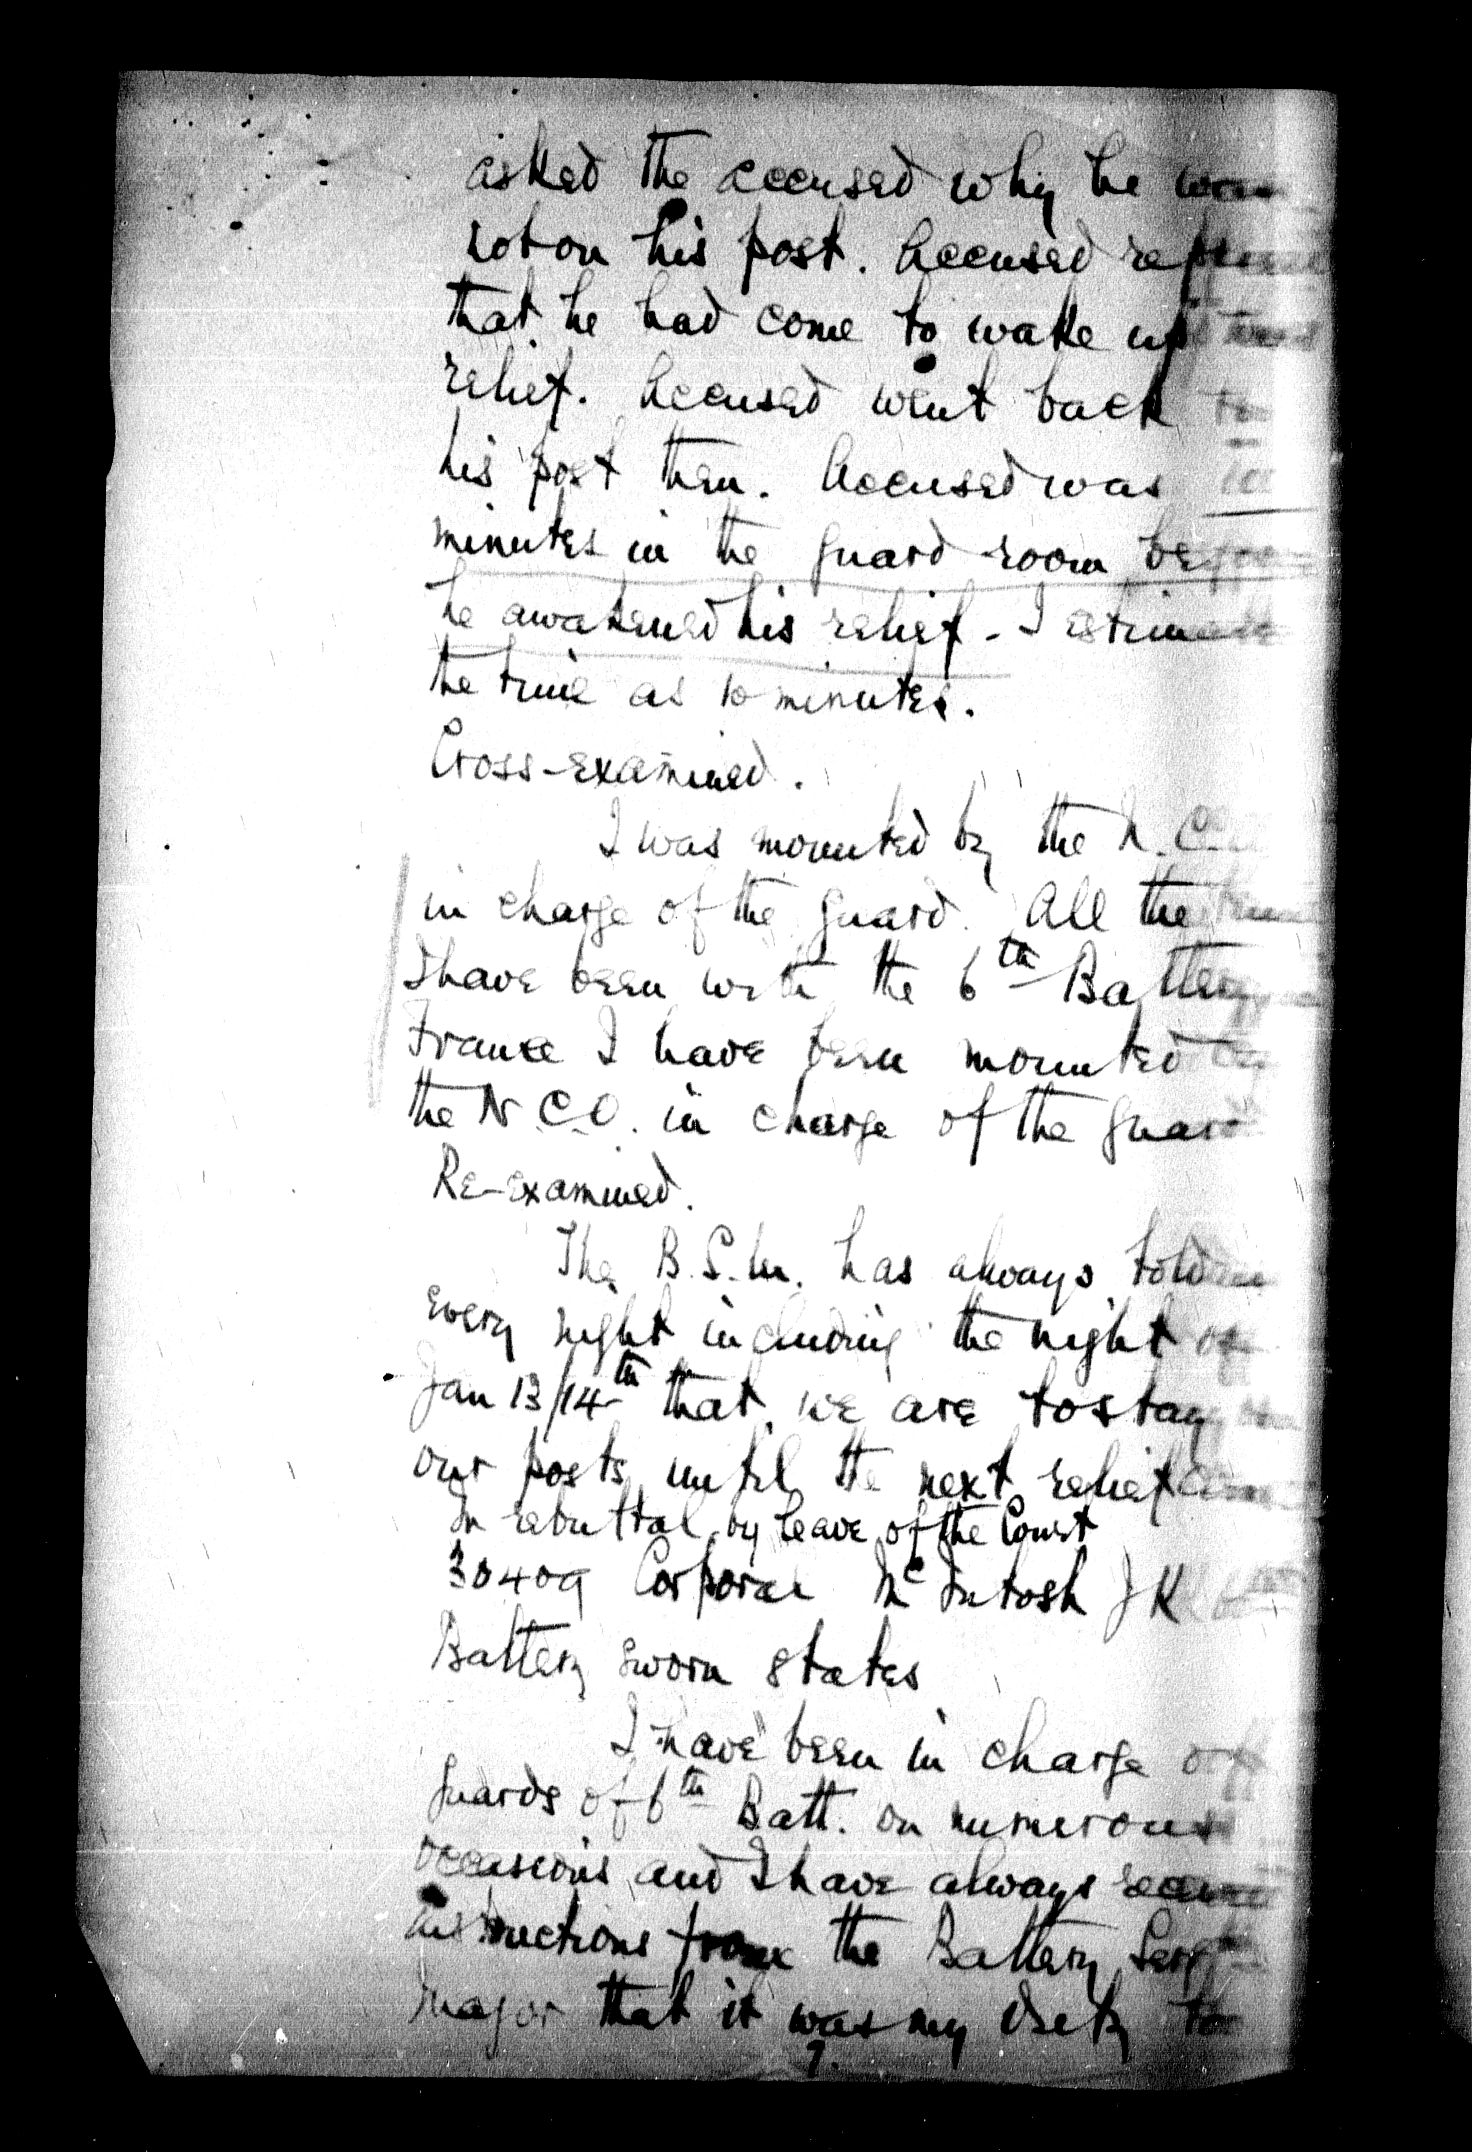 asked the accused why he was
not on his post. Accused replied
that he had come to wake up
relief. Accused went back to
his post then. Accused was 10
minutes in the guard room before
he awakened his relief - I estimate
the time as 10 minutes.
Cross-examined.
I was mounted by the N.C.
in charge of the guard. All the time
I have been with the 6th Battery
France I have been mounted by
the N.C.O. in charge of the guard
Re-examined.
The B.S.M. has always told
every night including the night of
Jan 13/14th that we are to stay on
our posts until the next relief
In rebuttal by leave of the Court
30409 Corporal McIntosh J K
Battery sworn states
I have been in charge of
guards of 6th Batt. on numerous
occasions and I have always
instructions from the Battery Sergt
Major that it was my duty to
7.